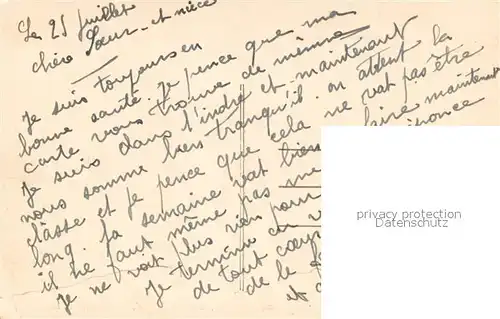 Le 25 juillet
chère Soeur et nièce
Je suis toujours en
bonne santé. je pence que ma
carte vous trouve de même
Je suis dans l'indre et maintenant
nous somme bien tranquil. on attent la
classe et je pence que cela ne vat pas être
long. la semaine vat faire maintenant
il ne faut même pas me
Je ne voit plus rien pour
Je termine en
de tout coeur
de la
et
privacy protection
www.oldthing.com